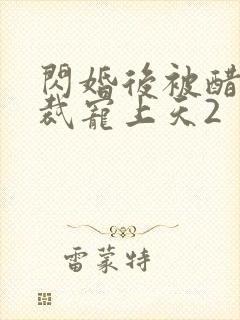 閃婚後被醋
裁寵上天2
雷蒙特